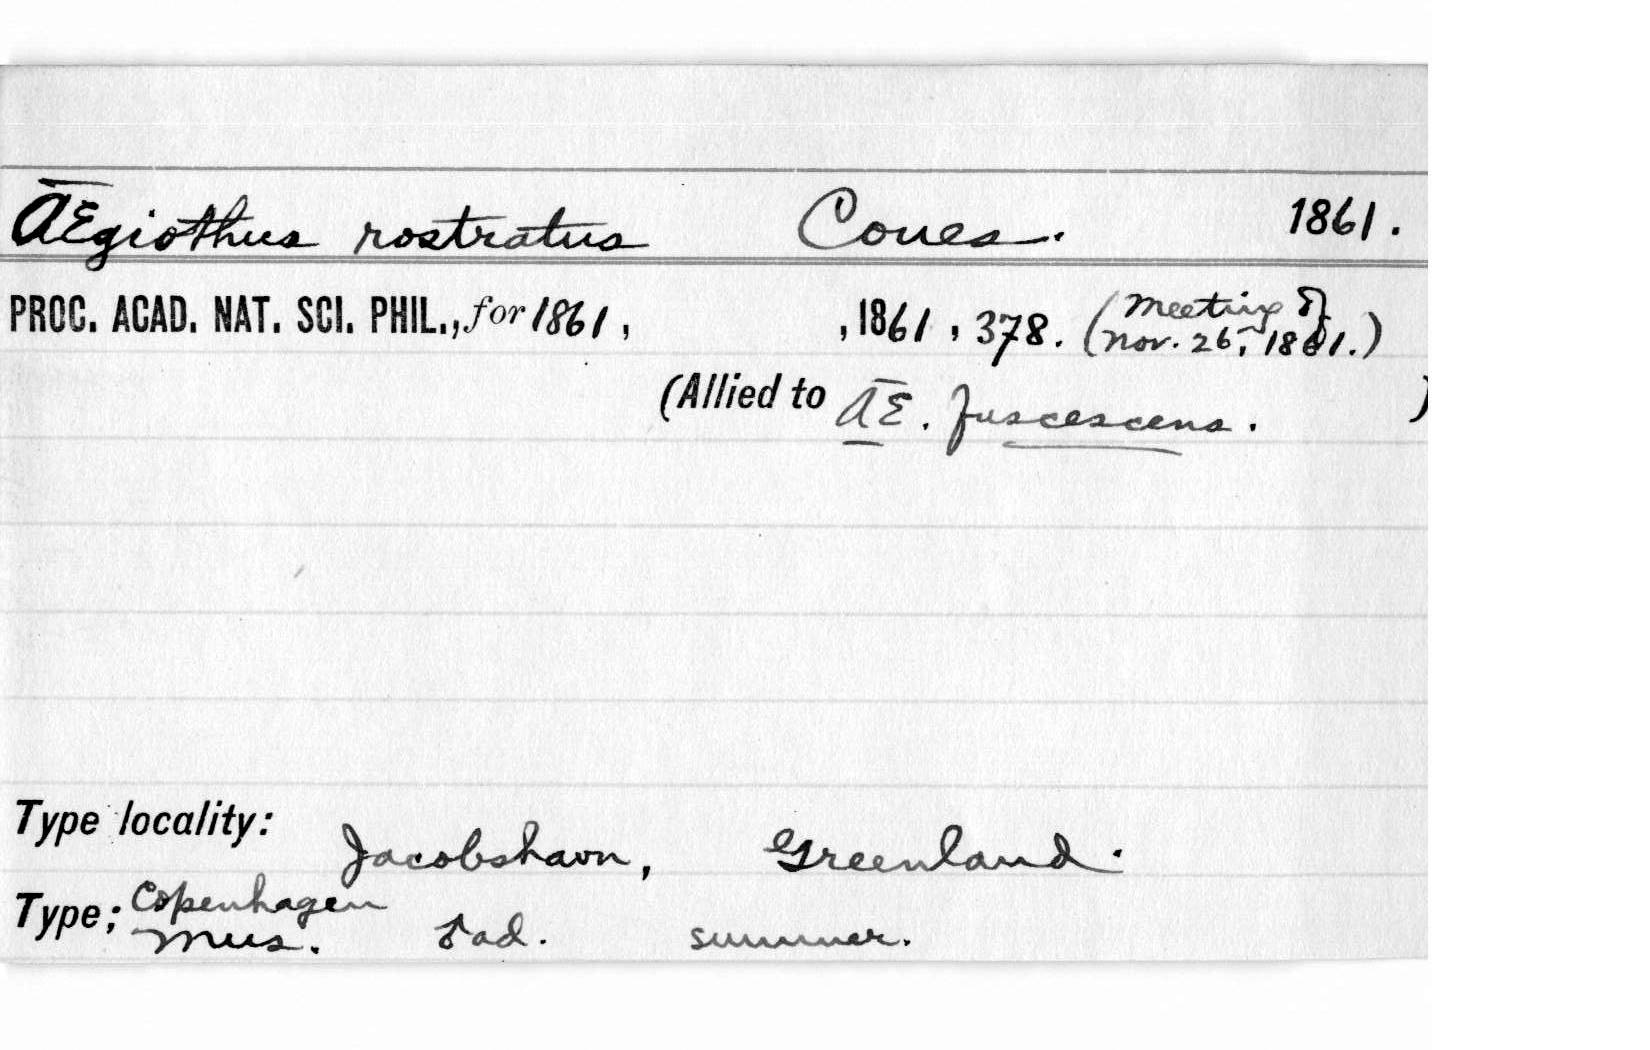 Ægiothus rostratus Coues. 1861.
PROC. ACAD. NAT. SCI. PHIL., for 1861, , 1861, 378. (Meeting of
Nov. 26, 1861.)
(Allied to Æ. fuscescens. )
Type locality: Jacobshavn, Greenland.
Type; Copenhagen
Mus. ad. summer.